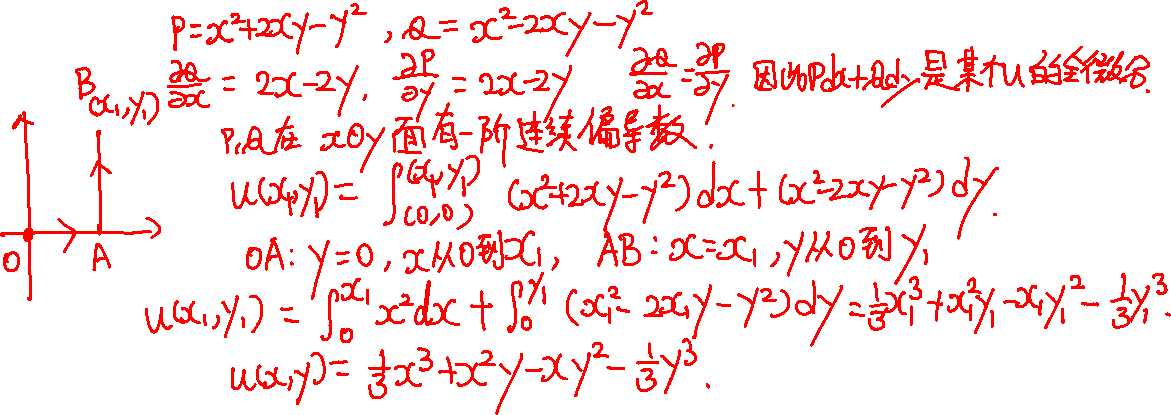 P=x²+2xy-y², Q=x²-2xy-y²
∂Q/∂x=2x-2y, ∂P/∂y=2x-2y ∂Q/∂x=∂P/∂y. 因此Pdx+Qdy是某个u的全微分.
P,Q在xOy面有一阶连续偏导数.
u(x₁,y₁)=∫_(0,0)^(x₁,y₁) (x²+2xy-y²)dx+(x²-2xy-y²)dy.
OA: y=0, x从0到x₁, AB: x=x₁, y从0到y₁
u(x₁,y₁)=∫₀^x₁ x²dx+∫₀^y₁ (x₁²-2x₁y-y²)dy=⅓x₁³+x₁²y₁-x₁y₁²-⅓y₁³.
u(x,y)=⅓x³+x²y-xy²-⅓y³.
B
(x₁,y₁)
O
A